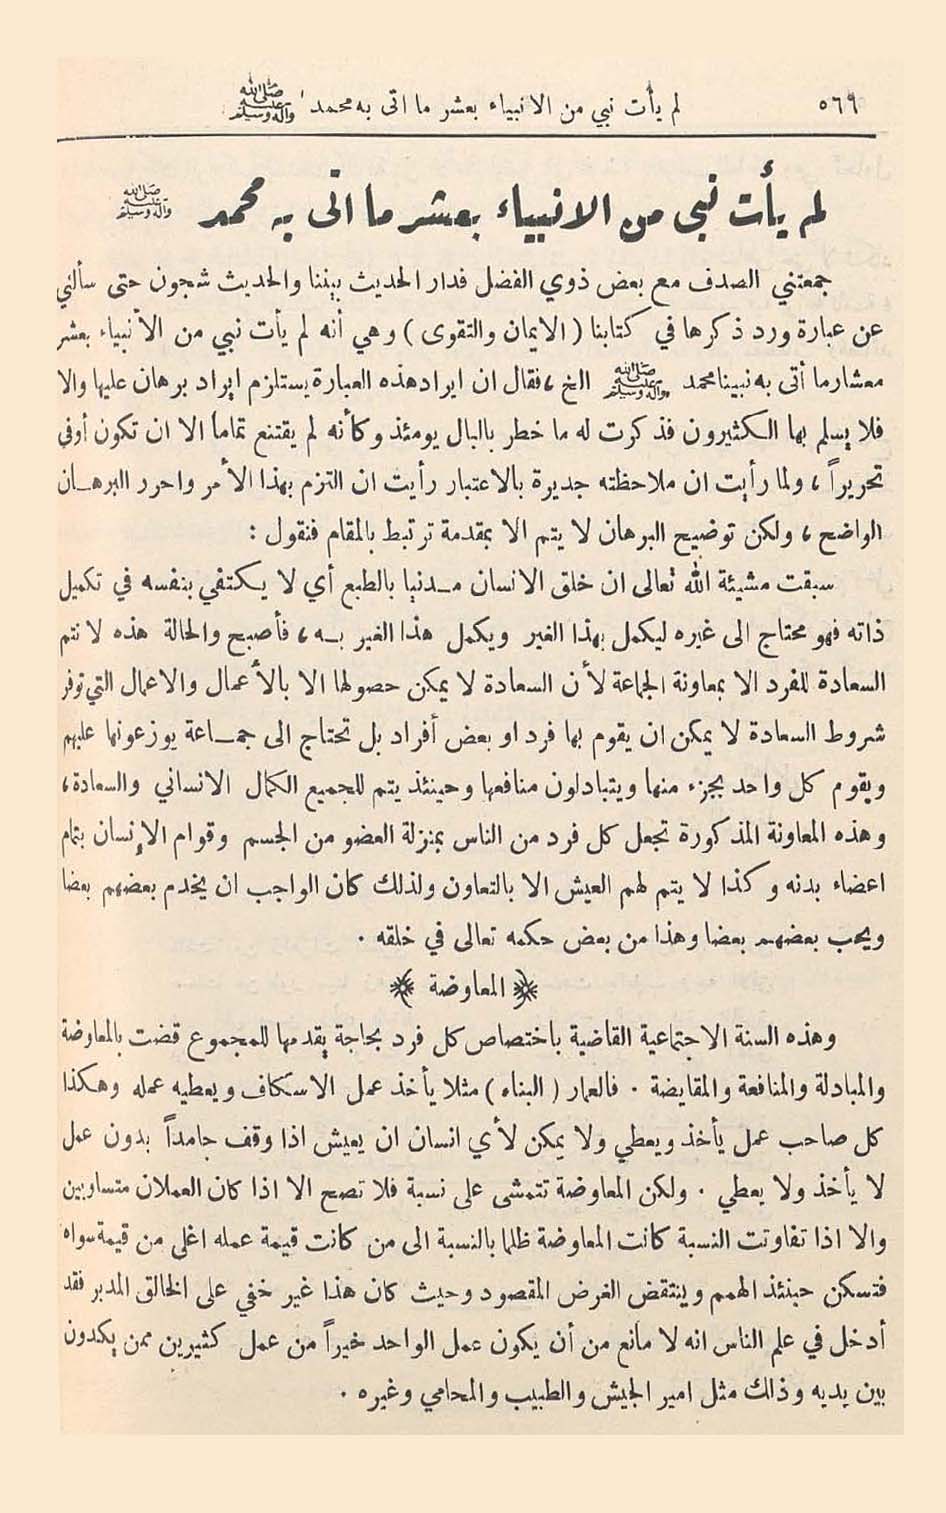 ٥٦٩
لم يأت نبي من الانبياء بعشر ما اتى به محمد صلى الله عليه وآله وسلم
لم يأت نبي من الانبياء بعشر ما اتى به محمد صلى الله عليه وآله وسلم
جمعتني الصدف مع بعض ذوي الفضل فدار الحديث بيننا والحديث شجون حتى سألني
عن عبارة ورد ذكرها في كتابنا ( الايمان والتقوى ) وهي أنه لم يأت نبي من الأنبياء بعشر
معشار ما أتى به نبينا محمد صلى الله عليه وآله وسلم الخ ، فقال ان ايراد هذه العبارة يستلزم ايراد برهان عليها والا
فلا يسلم بها الكثيرون فذكرت له ما خطر بالبال يومئذ وكأنه لم يقتنع تماما الا ان تكون أوفى
تحريراً ، ولما رأيت ان ملاحظته جديرة بالاعتبار رأيت ان التزم بهذا الأمر واحرر البرهـان
الواضح ، ولكن توضيح البرهان لا يتم الا بمقدمة ترتبط بالمقام فنقول :
سبقت مشيئة الله تعالى ان خلق الانسان مـدنيا بالطبع أي لا يكتفي بنفسه في تكميل
ذاته فهو محتاج الى غيره ليكمل بهذا الغير ويكمل هذا الغير بـه ، فأصبح والحالة هذه لا تتم
السعادة للفرد الا بمعاونة الجماعة لأن السعادة لا يمكن حصولها الا بالأعمال والاعمال التي توفر
شروط السعادة لا يمكن ان يقوم بها فرد او بعض أفراد بل تحتاج الى جمـاعة يوزعونها عليهم
ويقوم كل واحد بجزء منها ويتبادلون منافعها وحينئذ يتم للجميع الكمال الانساني والسعادة ،
وهذه المعاونة المذكورة تجعل كل فرد من الناس بمنزلة العضو من الجسم وقوام الإنسان بتمام
اعضاء بدنه وكذا لا يتم لهم العيش الا بالتعاون ولذلك كان الواجب ان يخدم بعضهم بعضا
ويحب بعضهم بعضا وهذا من بعض حكمه تعالى في خلقه .
﴿ المعاوضة ﴾
وهذه السنة الاجتماعية القاضية باختصاص كل فرد بحاجة يقدمها للمجموع قضت بالمعاوضة
والمبادلة والمنافعة والمقايضة . فالعمار ( البناء ) مثلا يأخذ عمل الاسكاف ويعطيه عمله وهكذا
كل صاحب عمل يأخذ ويعطي ولا يمكن لأي انسان ان يعيش اذا وقف جامداً بدون عمل
لا يأخذ ولا يعطي . ولكن المعاوضة تتمشى على نسبة فلا تصح الا اذا كان العملان متساويين
والا اذا تفاوتت النسبة كانت المعاوضة ظلما بالنسبة الى من كانت قيمة عمله اغلى من قيمة سواه
فتسكن حينئذ الهمم وينتقض الغرض المقصود وحيث كان هذا غير خفي على الخالق المدبر فقد
أدخل في علم الناس انه لا مانع من أن يكون عمل الواحد خيراً من عمل كثيرين ممن يكدون
بين يديه وذلك مثل امير الجيش والطبيب والمحامي وغيره .